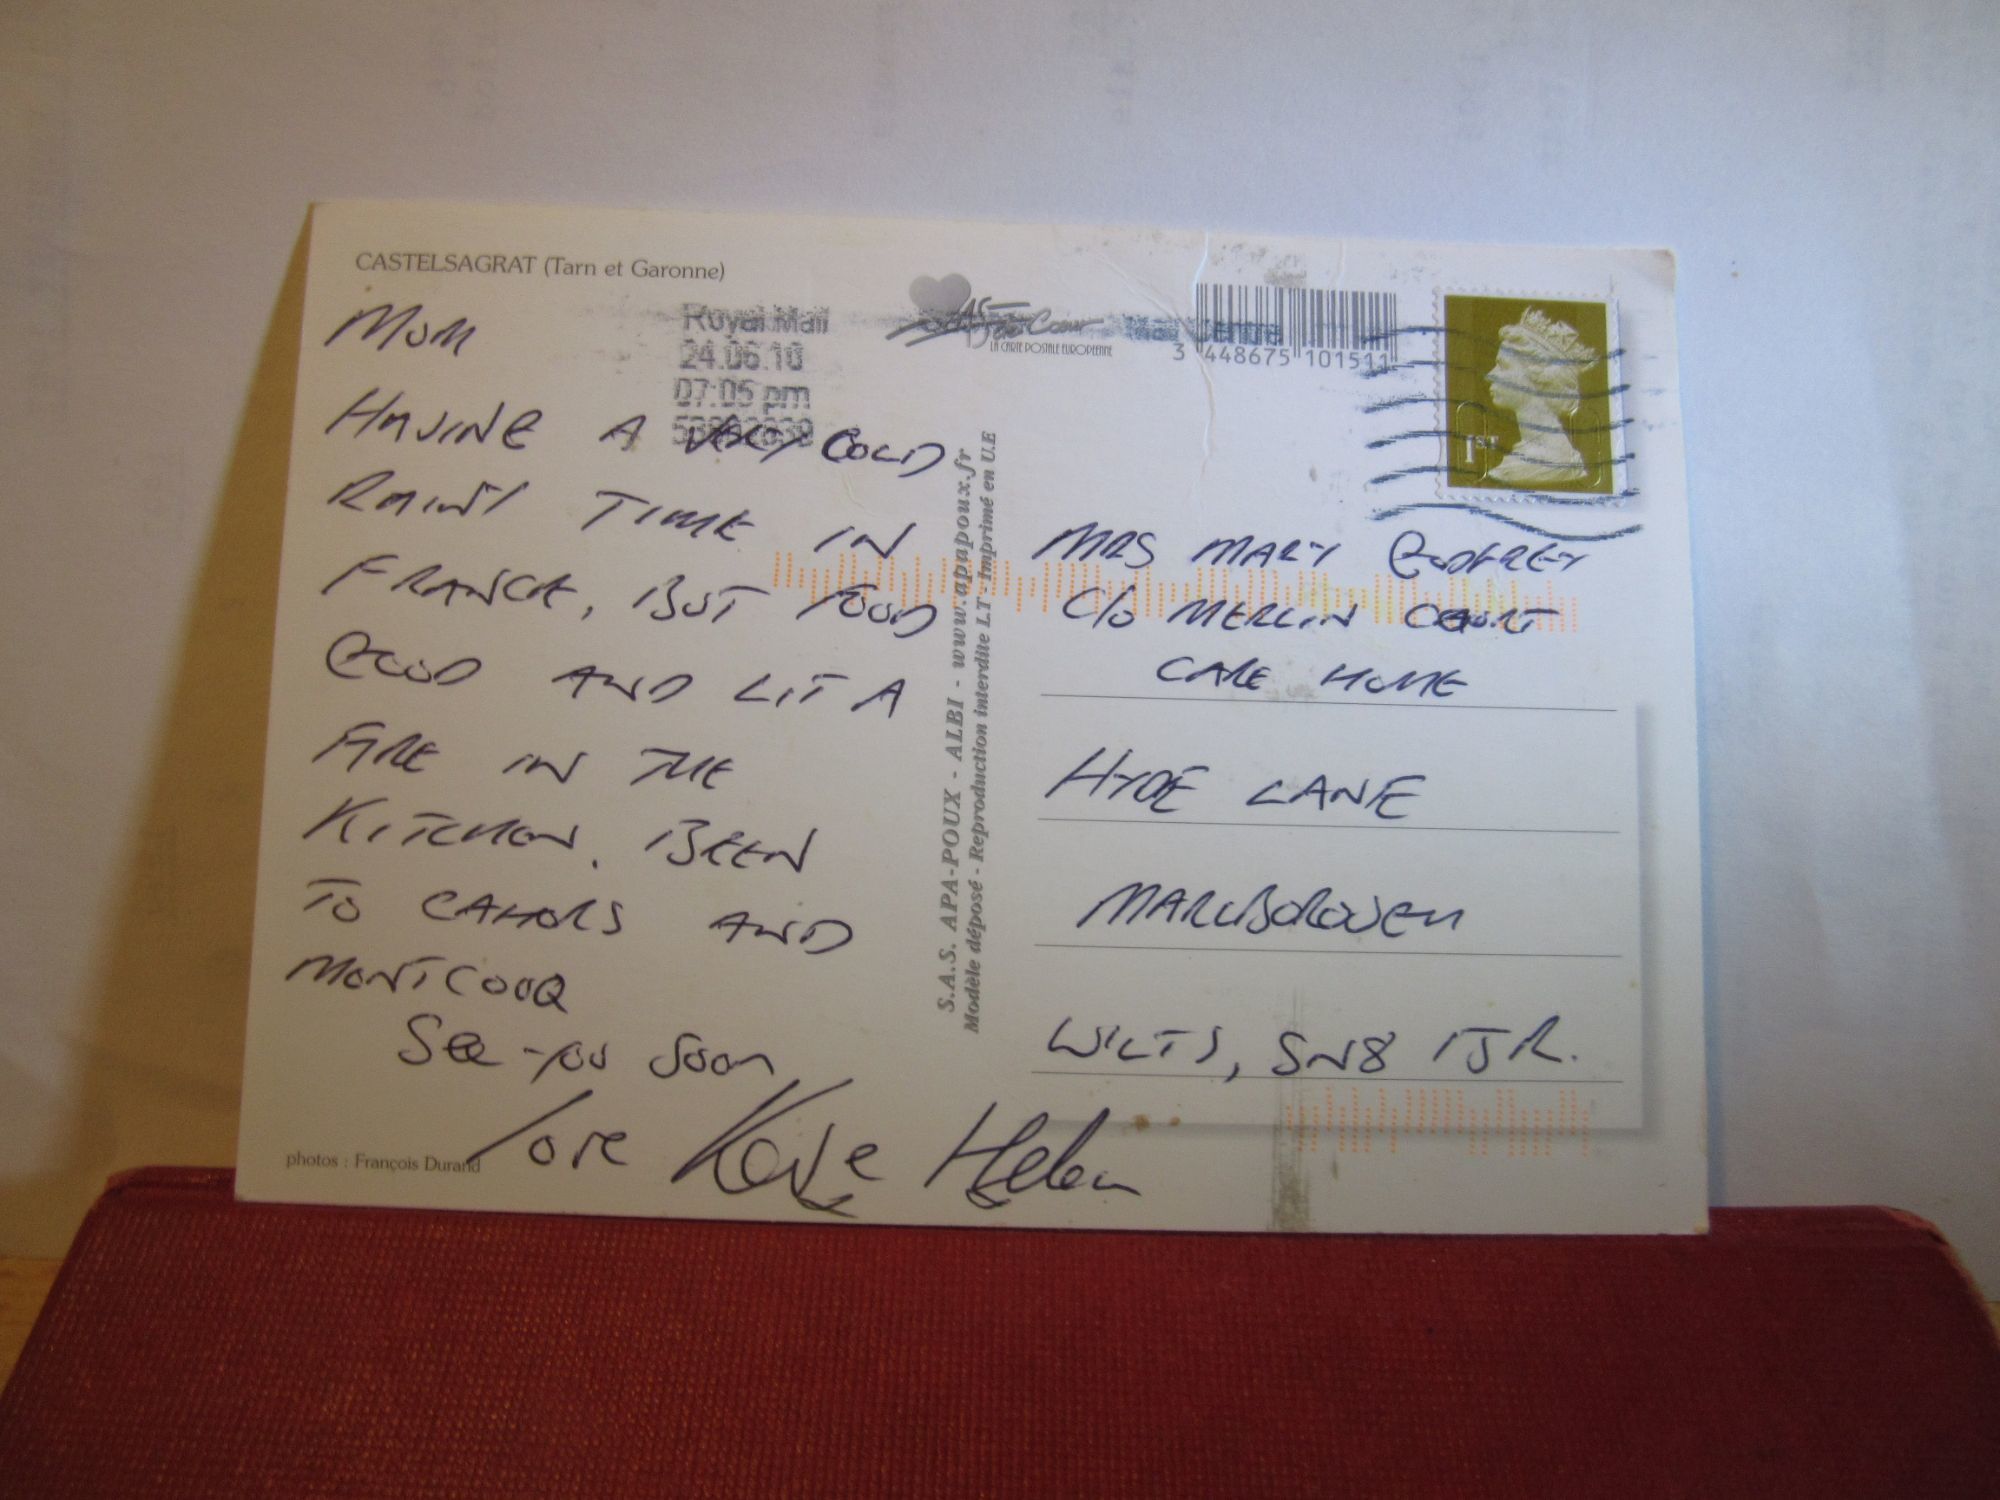 CASTELSAGRAT (Tarn et Garonne)
MUM
HAVING A VERY COLD
RAINY TIME IN
FRANCE, BUT FOOD
GOOD AND LIT A
FIRE IN THE
KITCHEN. BEEN
TO CAHORS AND
MONTCOOQ
See you soon
Love
Helen
photos : François Durand
Royal Mail
24.06.10
07:05 pm
Mail Centre
LA CARTE POSTALE EUROPEENNE
3 448675 101511
1ST
S.A.S. APA-POUX - ALBI - www.apapoux.fr
Modèle déposé - Reproduction interdite LT - Imprimé en U.E
MRS MARY GODFREY
C/O MERLIN COURT
CARE HOME
HYDE LANE
MARLBOROUGH
WILTS, SN8 1JR.